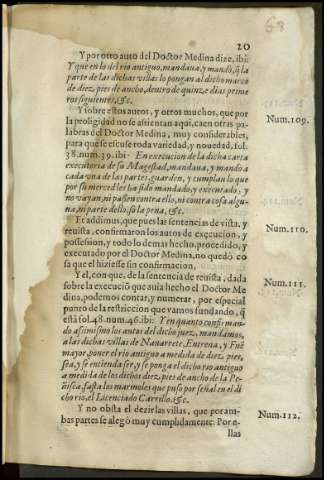 68
20
Y por otro auto del Doctor Medina dize, ibi:
Y que en lo del rio antiguo, mandaua, y mandò, q̃ la
parte de las dichas villas lo pongan al dicho marco
de diez pies de ancho, dentro de quinze dias prime
ros siguientes, &c.
Y sobre estos autos, y otros muchos, que por
la proligidad no se assientan aqui, caen otras pa-
labras del Doctor Medina, muy considerables,
para que se escuse toda variedad, y nouedad, fol.
38. num. 39. ibi: En execucion de la dicha carta
executoria de su Magestad, mandaua, y mandò a
cada vna de las partes, guarden, y cumplan lo que
por su merced les ha sido mandado, y executado, y
no vayan, ni passen contra ello, ni contra cosa algu-
na, ni parte dello, so la pena, &c.
Et addimus, que pues las sentencias de vista, y
reuista, confirmaron los autos de execucion, y
possession, y todo lo demas hecho, procedido, y
executado por el Doctor Medina, no quedò co
sa que el hiziesse sin confirmacion.
Y el, con que, de la sentencia de reuista, dada
sobre la execuciõ que auia hecho el Doctor Me
dina, podemos contar, y numerar, por especial
punto de la restriccion que vamos fundando, q̃
està fol. 48. num. 46. ibi: Y en quanto confirman-
do assimismo los autos del dicho juez, mandamos,
a las dichas villas de Nauarrete, Entrena, y Fuẽ
mayor, poner el rio antiguo a medida de diez pies,
sea, y se entienda ser, y se ponga el dicho rio antiguo
a medida de los dichos diez pies de ancho de la Pe-
ñisca, fasta los marmoles que puso por señal en el di
cho rio, el Licenciado Carrillo, &c.
Y no obsta el dezir las villas, que por am-
bas partes se alegò muy cumplidamente. Por e-
llas
Num. 109.
Num. 110.
Num. 111.
Num. 112.